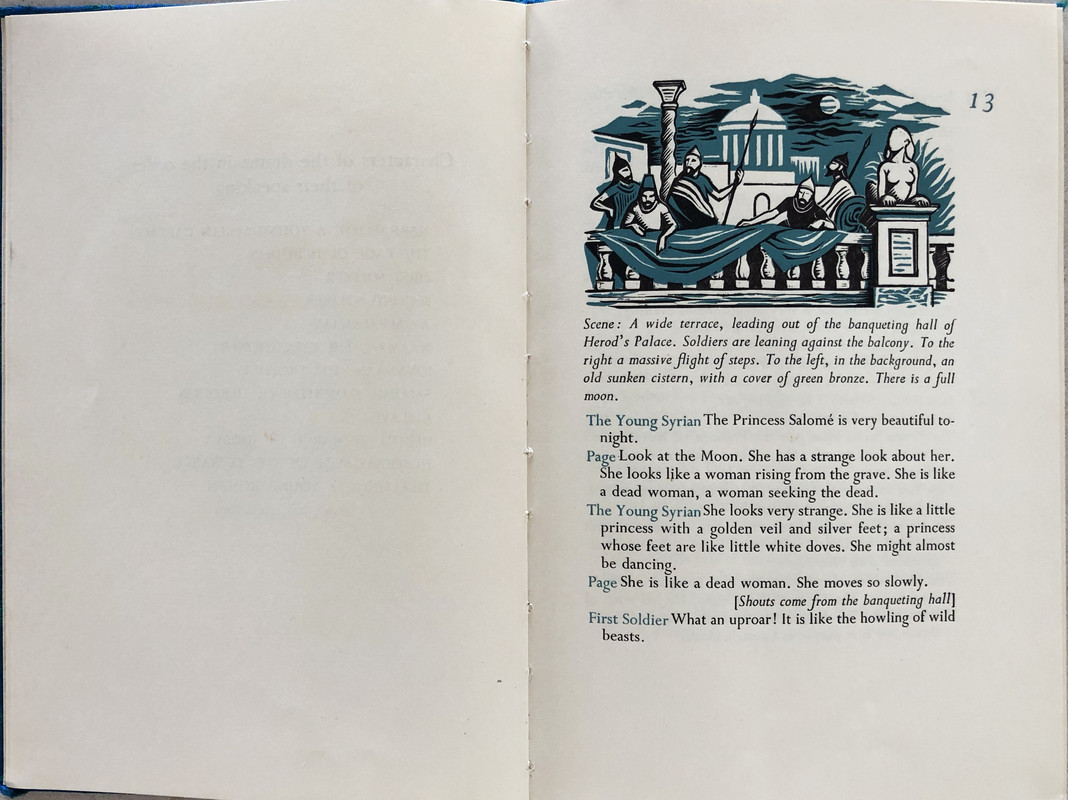 13
Scene: A wide terrace, leading out of the banqueting hall of
Herod's Palace. Soldiers are leaning against the balcony. To the
right a massive flight of steps. To the left, in the background, an
old sunken cistern, with a cover of green bronze. There is a full
moon.
The Young Syrian The Princess Salomé is very beautiful to-
night.
Page Look at the Moon. She has a strange look about her.
She looks like a woman rising from the grave. She is like
a dead woman, a woman seeking the dead.
The Young Syrian She looks very strange. She is like a little
princess with a golden veil and silver feet; a princess
whose feet are like little white doves. She might almost
be dancing.
Page She is like a dead woman. She moves so slowly.
[Shouts come from the banqueting hall]
First Soldier What an uproar! It is like the howling of wild
beasts.